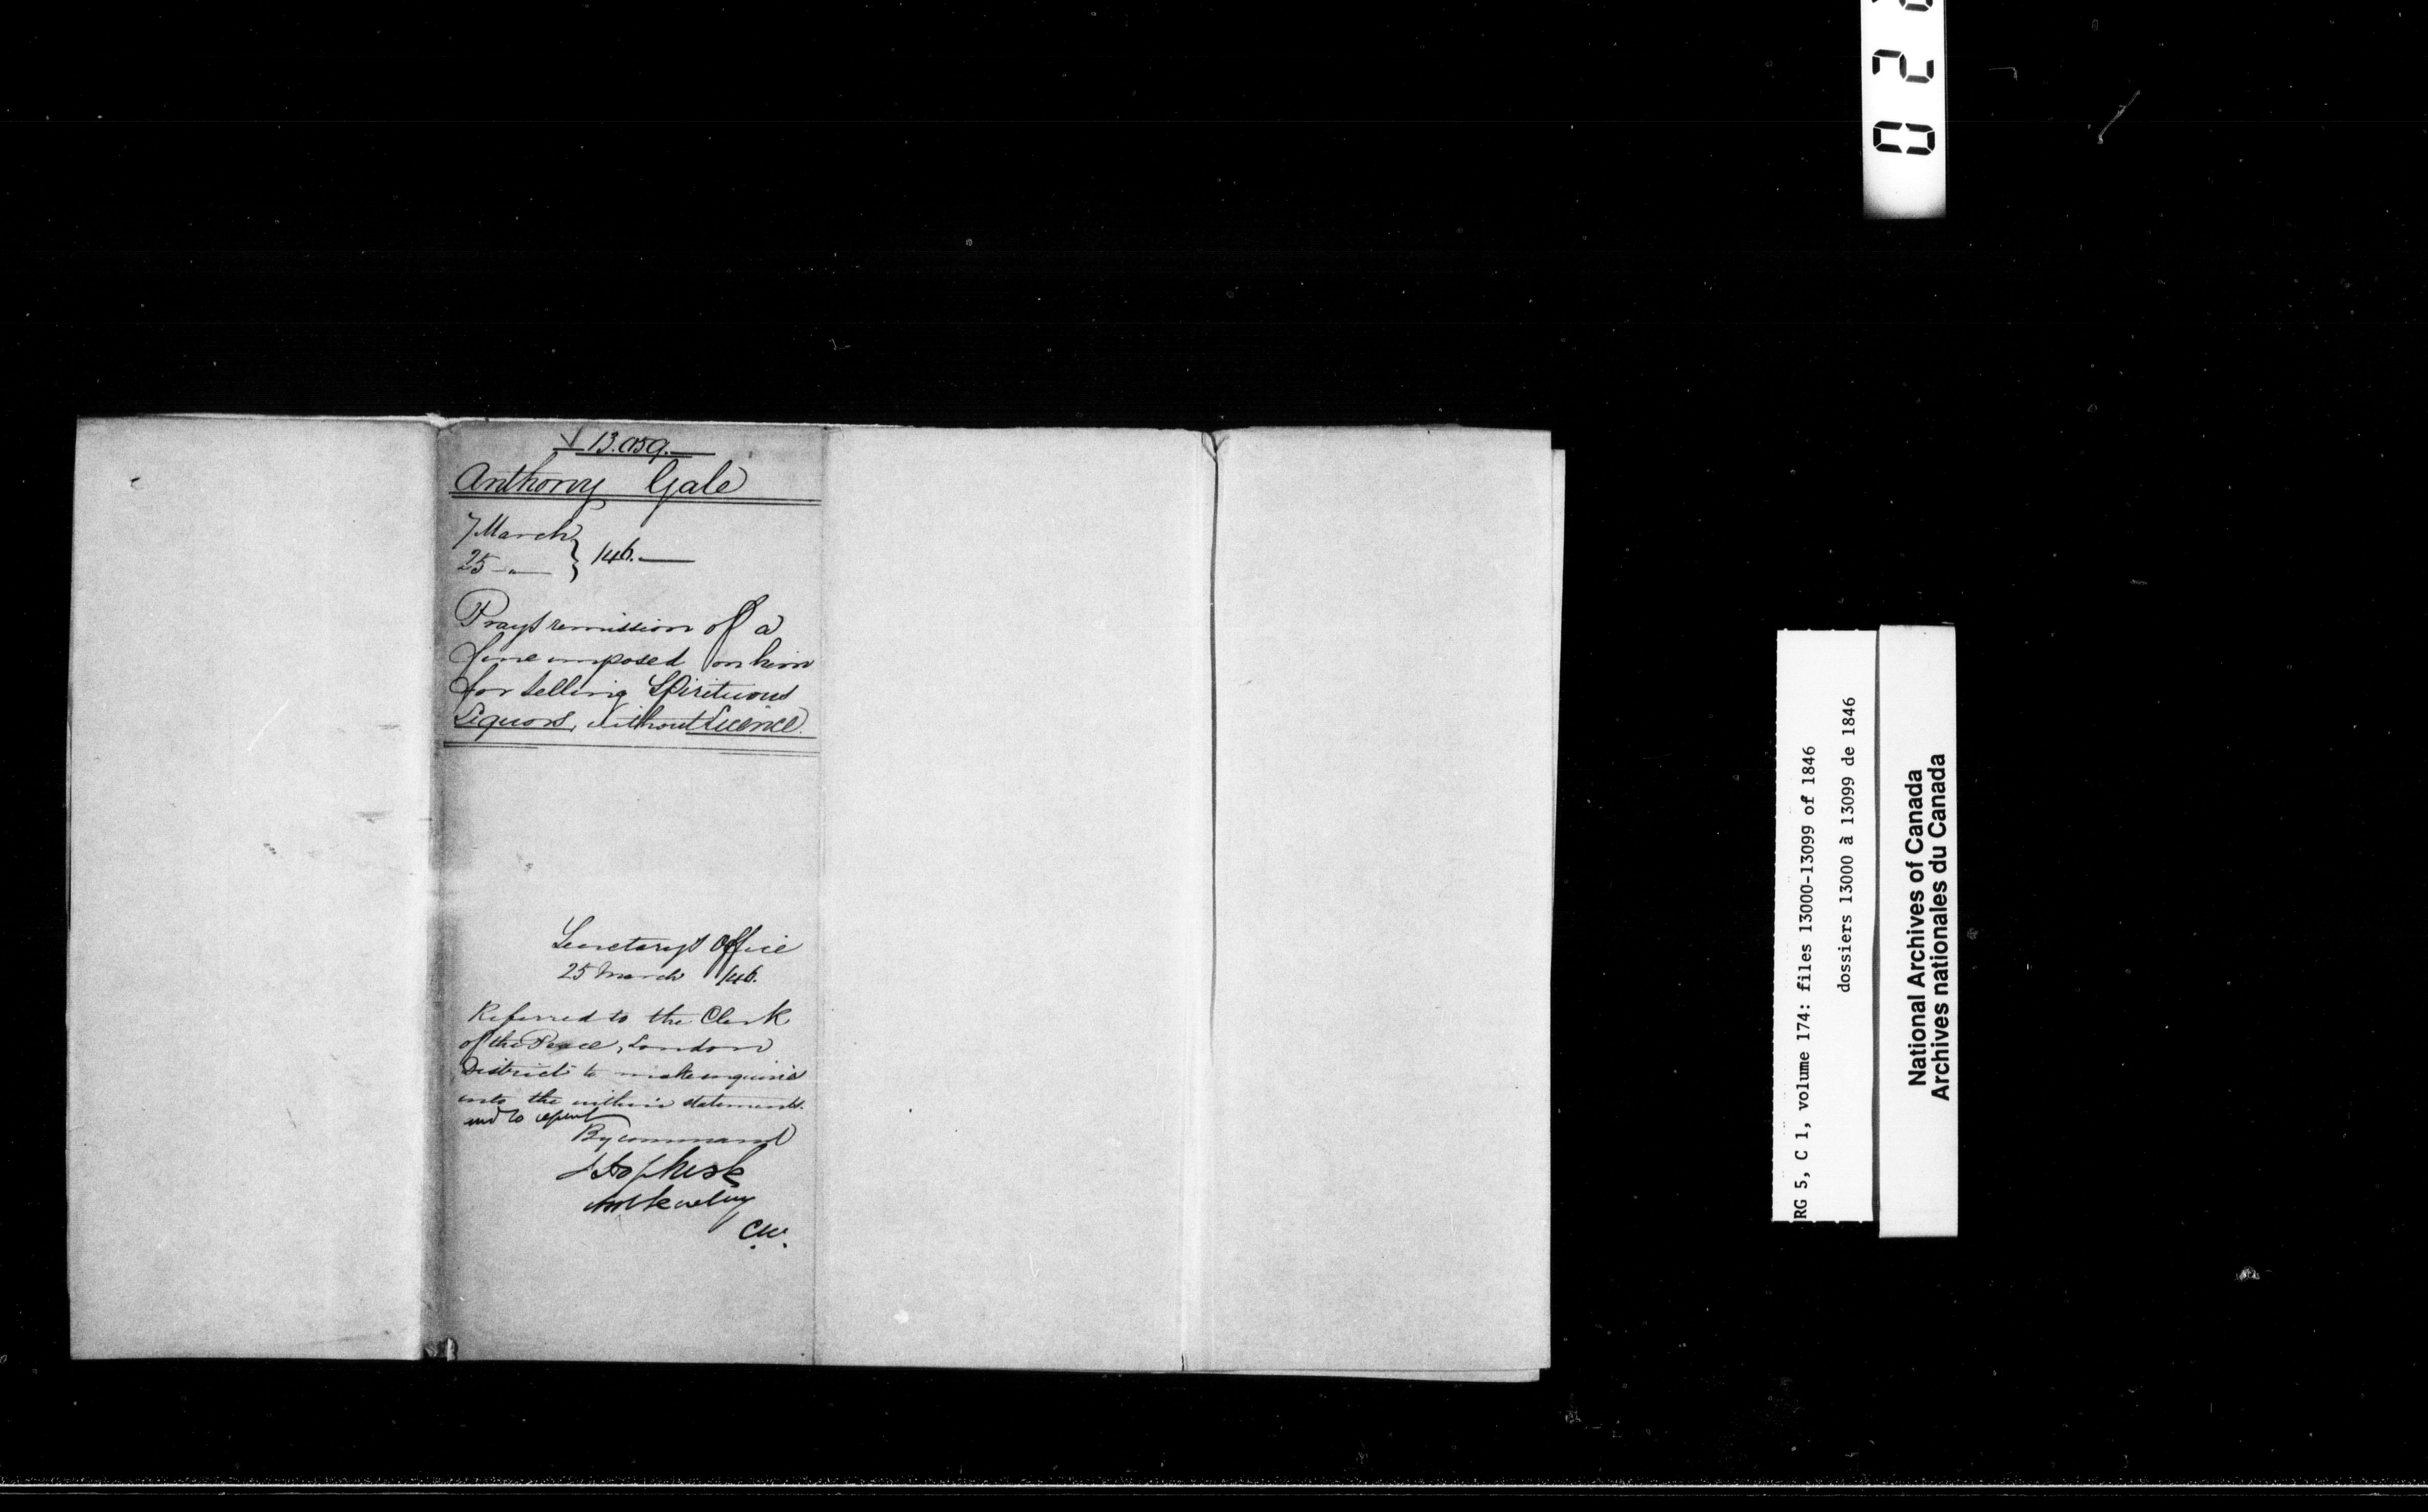 13.059.
Anthony Gale
7 March
25 — " — } /46. —
Prays remission of a
fine imposed on him
for selling Spirituous
Liquors, without Licence.
Secretary's Office
25 March /46.
Referred to the Clerk
of the Peace, London
District to make enquiries
into the within statements.
and to report
By command
C.W.
RG 5, C 1, volume 174: files 13000-13099 of 1846
dossiers 13000 à 13099 de 1846
National Archives of Canada
Archives nationales du Canada
0 2